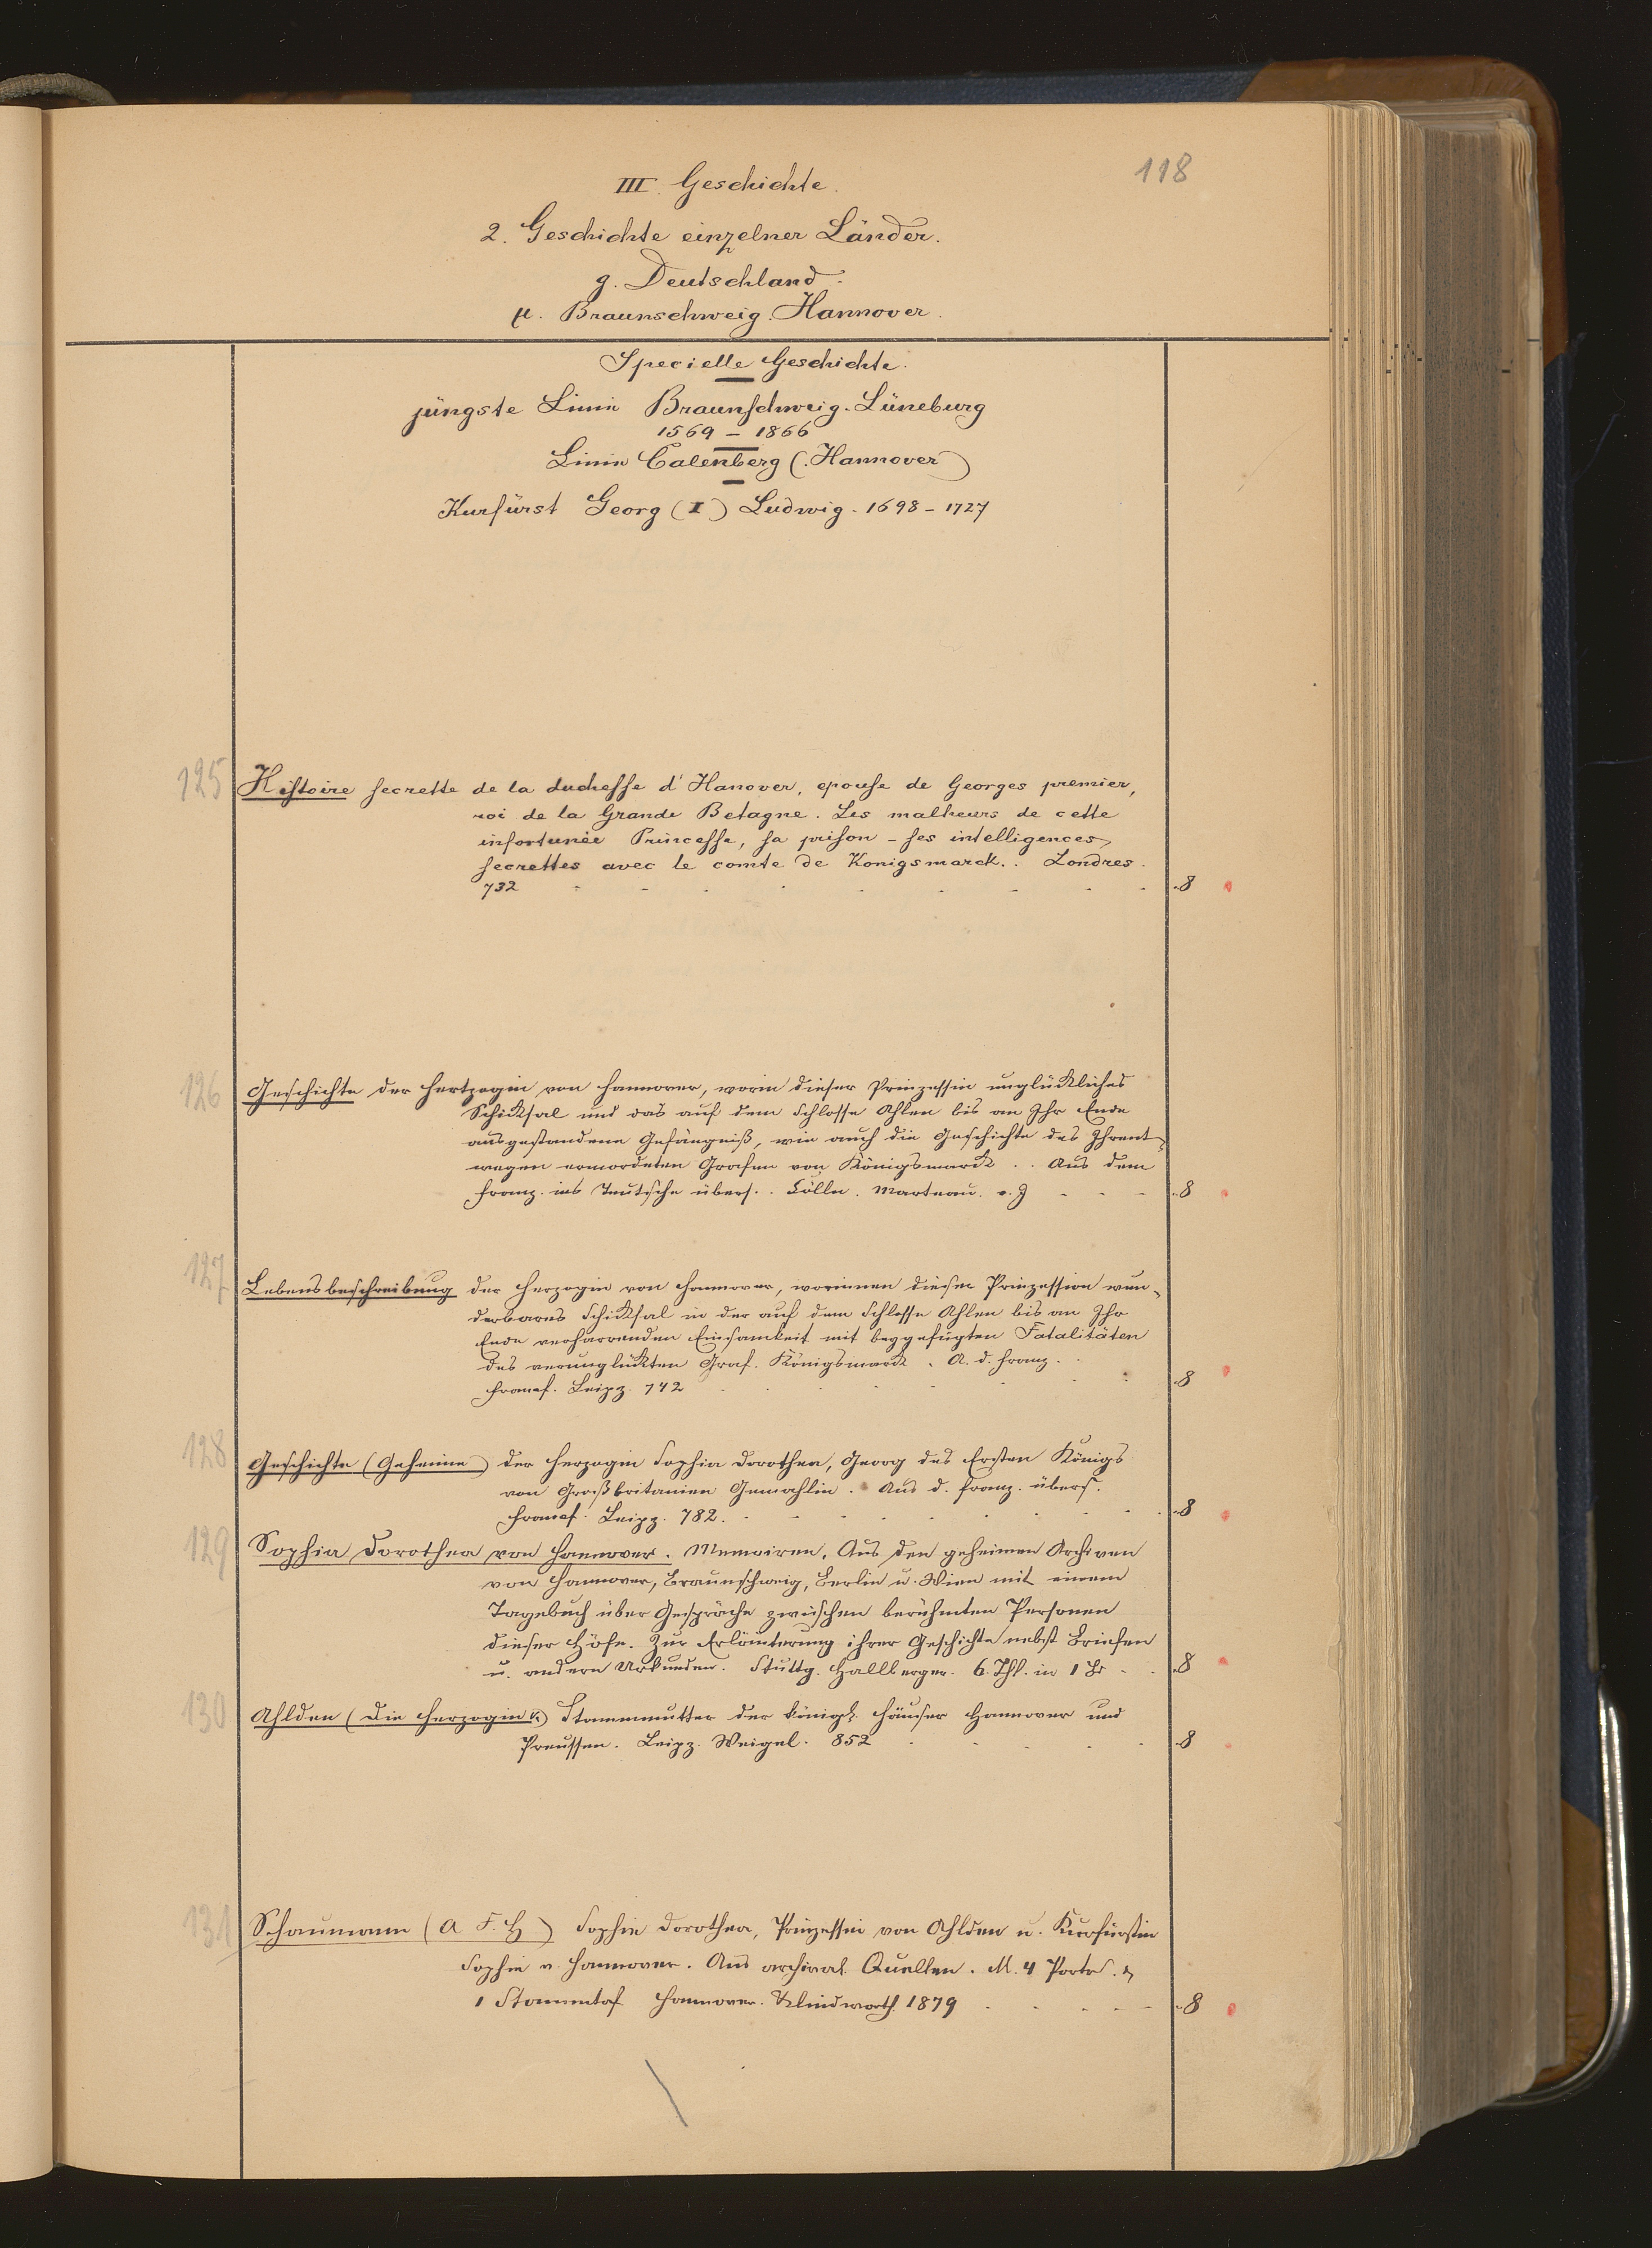 118
III. Geschichte.
2. Geschichte einzelner Länder.
g. Deutschland.
µ. Braunschweig. Hannover.
Specielle Geschichte.
jüngste Linie Braunschweig-Lüneburg
1569 – 1866
Linie Calenberg (. Hannover)
Kurfürst Georg (I) Ludwig. 1698 – 1727
125 Histoire secrette de la duchesse d'Hanover, epouse de Georges premier,
roi de la Grande Betagne. Les malheurs de cette
infortunée Princesse, sa prison – ses intelligences
secrettes avec le comte de Konigsmarck. . Londres.
732 8
126 Geschichte der Hertzogin von Hannover, worin dieser Prinzessin unglückliches
Schicksal und das auf dem Schlosse Ahlen bis an Ihr Ende
ausgestandene Gefängniß, wie auch die Geschichte des Ihrent-
wegen ermordeten Grafen von Königsmarck . . Aus dem
Franz. ins Teutsche übers. . Cölln. Marteau. o. J 8
127 Lebensbeschreibung der Herzogin von Hannover, worinnen dieser Prinzession wun-
derbares Schicksal in der auf dem Schlosse Ahlen bis an Ihr
Ende verharrenden Einsamkeit mit beygefügten Fatalitäten
des verunglückten Graf. Königsmarck. A. d. Franz. .
Francf. Leipz. 742 8
128 Geschichte (Geheime) der Herzogin Sophia Dorothea, Georg des Ersten Königs
von Großbritanien Gemahlin. Aus d. Franz. übers.
Francf. Leipz. 782. 8
129 Sophia Dorothea von Hannover. Memoiren. Aus den geheimen Archiven
von Hannover, Braunschweig, Berlin u. Wien mit einem
Tagebuch über Gespräche zwischen berühmten Personen
dieser Höfe. Zur Erläuterung ihrer Geschichte nebst Briefen
u. andern Urkunden. Stuttg. Hallberger. 6. Thl. in 1 8
130 Ahlden (Die Herzogin v.) Stammmutter der königl. Häuser Hannover und
Preussen. Leipz. Weigel. 852 8
131 Schaumann (A F. H) Sophie Dorothea, Prinzessin von Ahlden u. Kurfürstin
Sophie v. Hannover. Aus archival. Quellen. M. 4 Portr.
1 Stammtaf Hannover. Klindworth. 1879 8